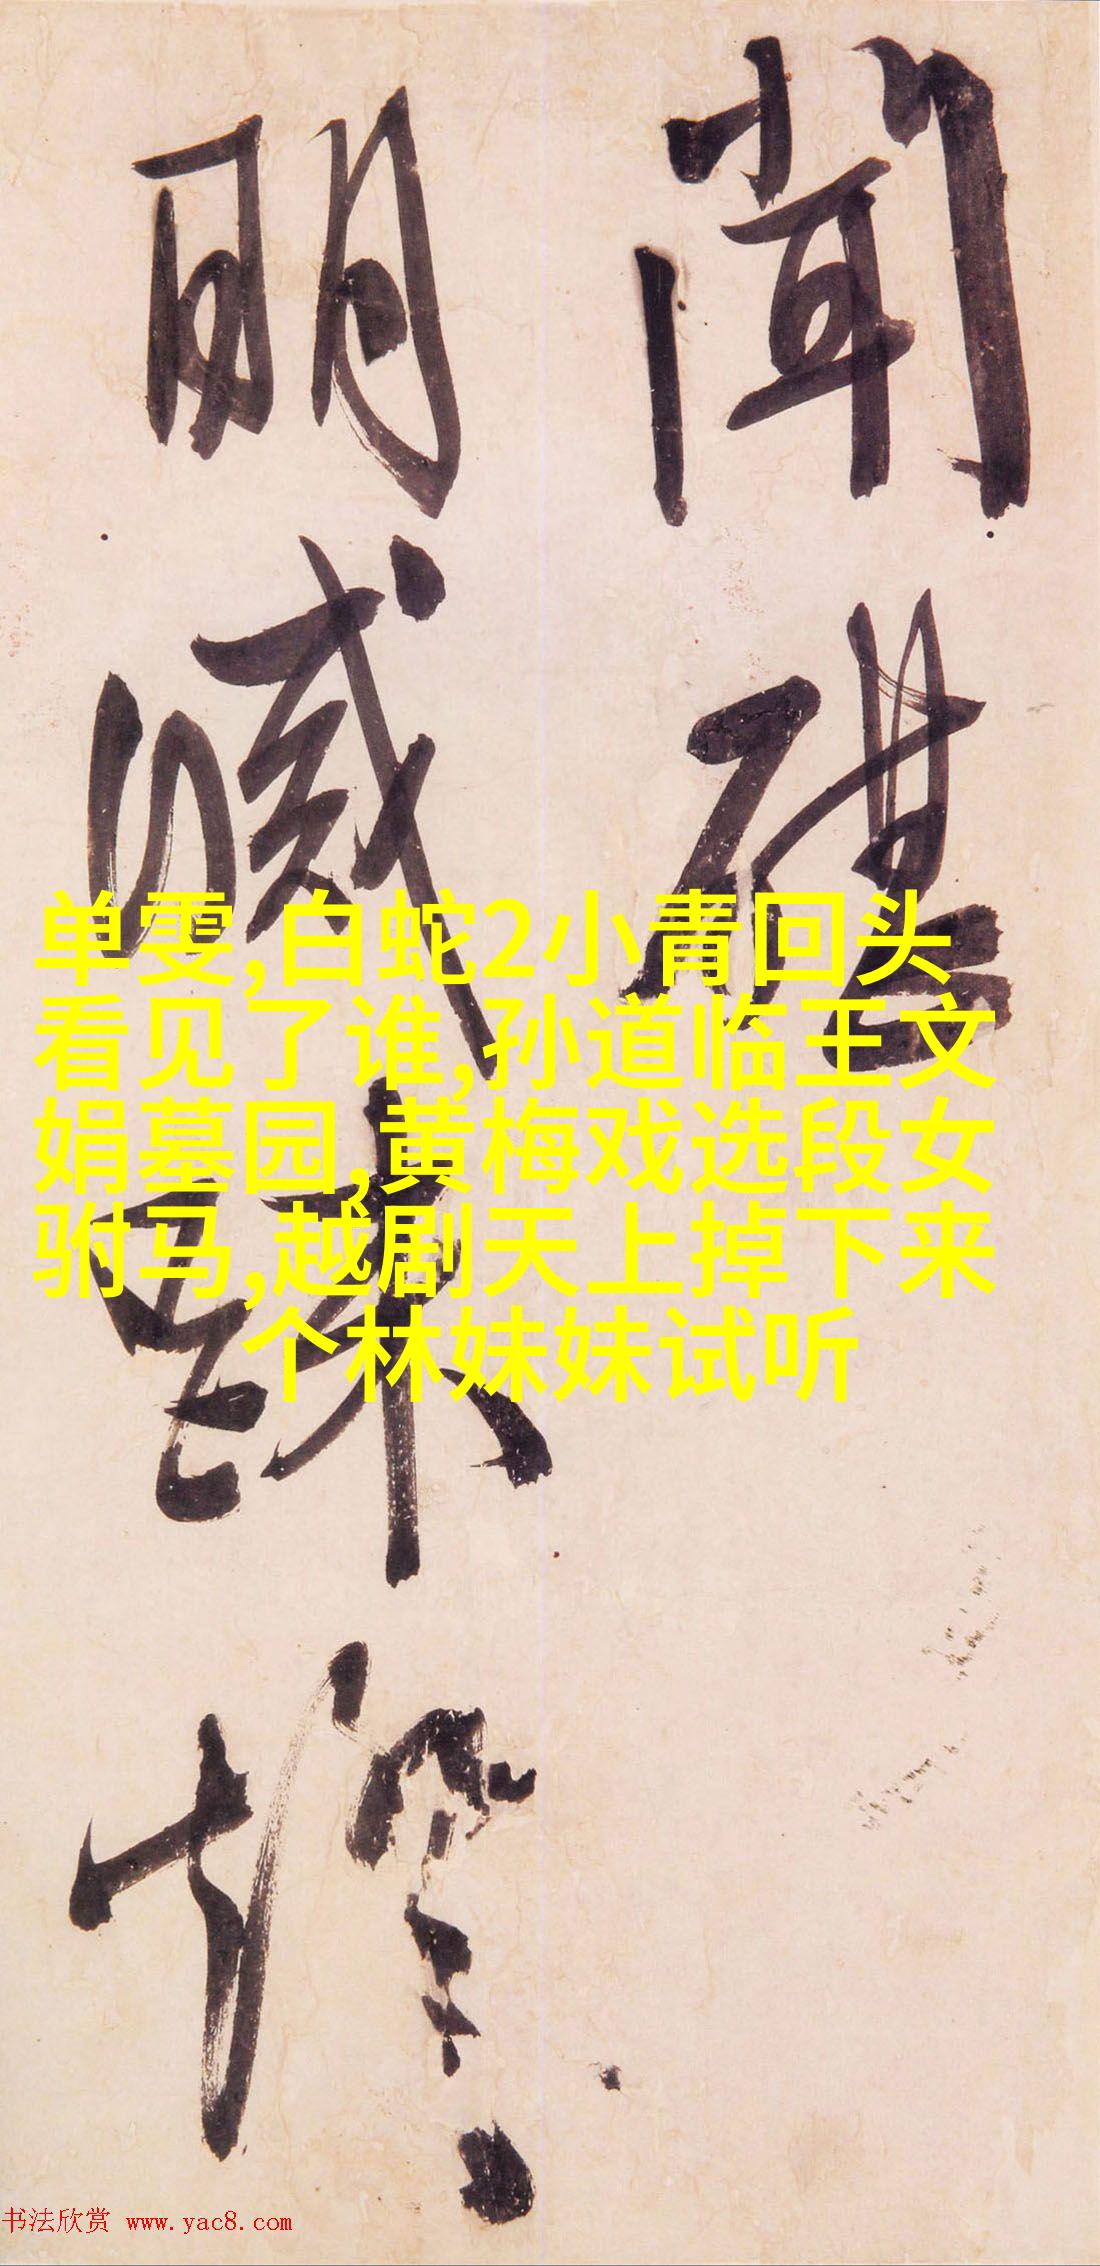 聞碪
明滅踈燈
单雯,白蛇2小青回头
看见了谁,孙道临王文
娟墓园,黄梅戏选段女
驸马,越剧天上掉下来
个林妹妹试听
书法欣赏 www.yac8.com